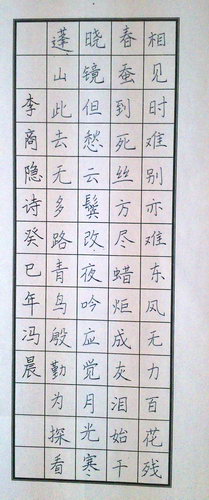 相见时难别亦难东风无力百花残
春蚕到死丝方尽蜡炬成灰泪始干
晓镜但愁云鬓改夜吟应觉月光寒
蓬山此去无多路青鸟殷勤为探看
李商隐诗癸巳年冯晨